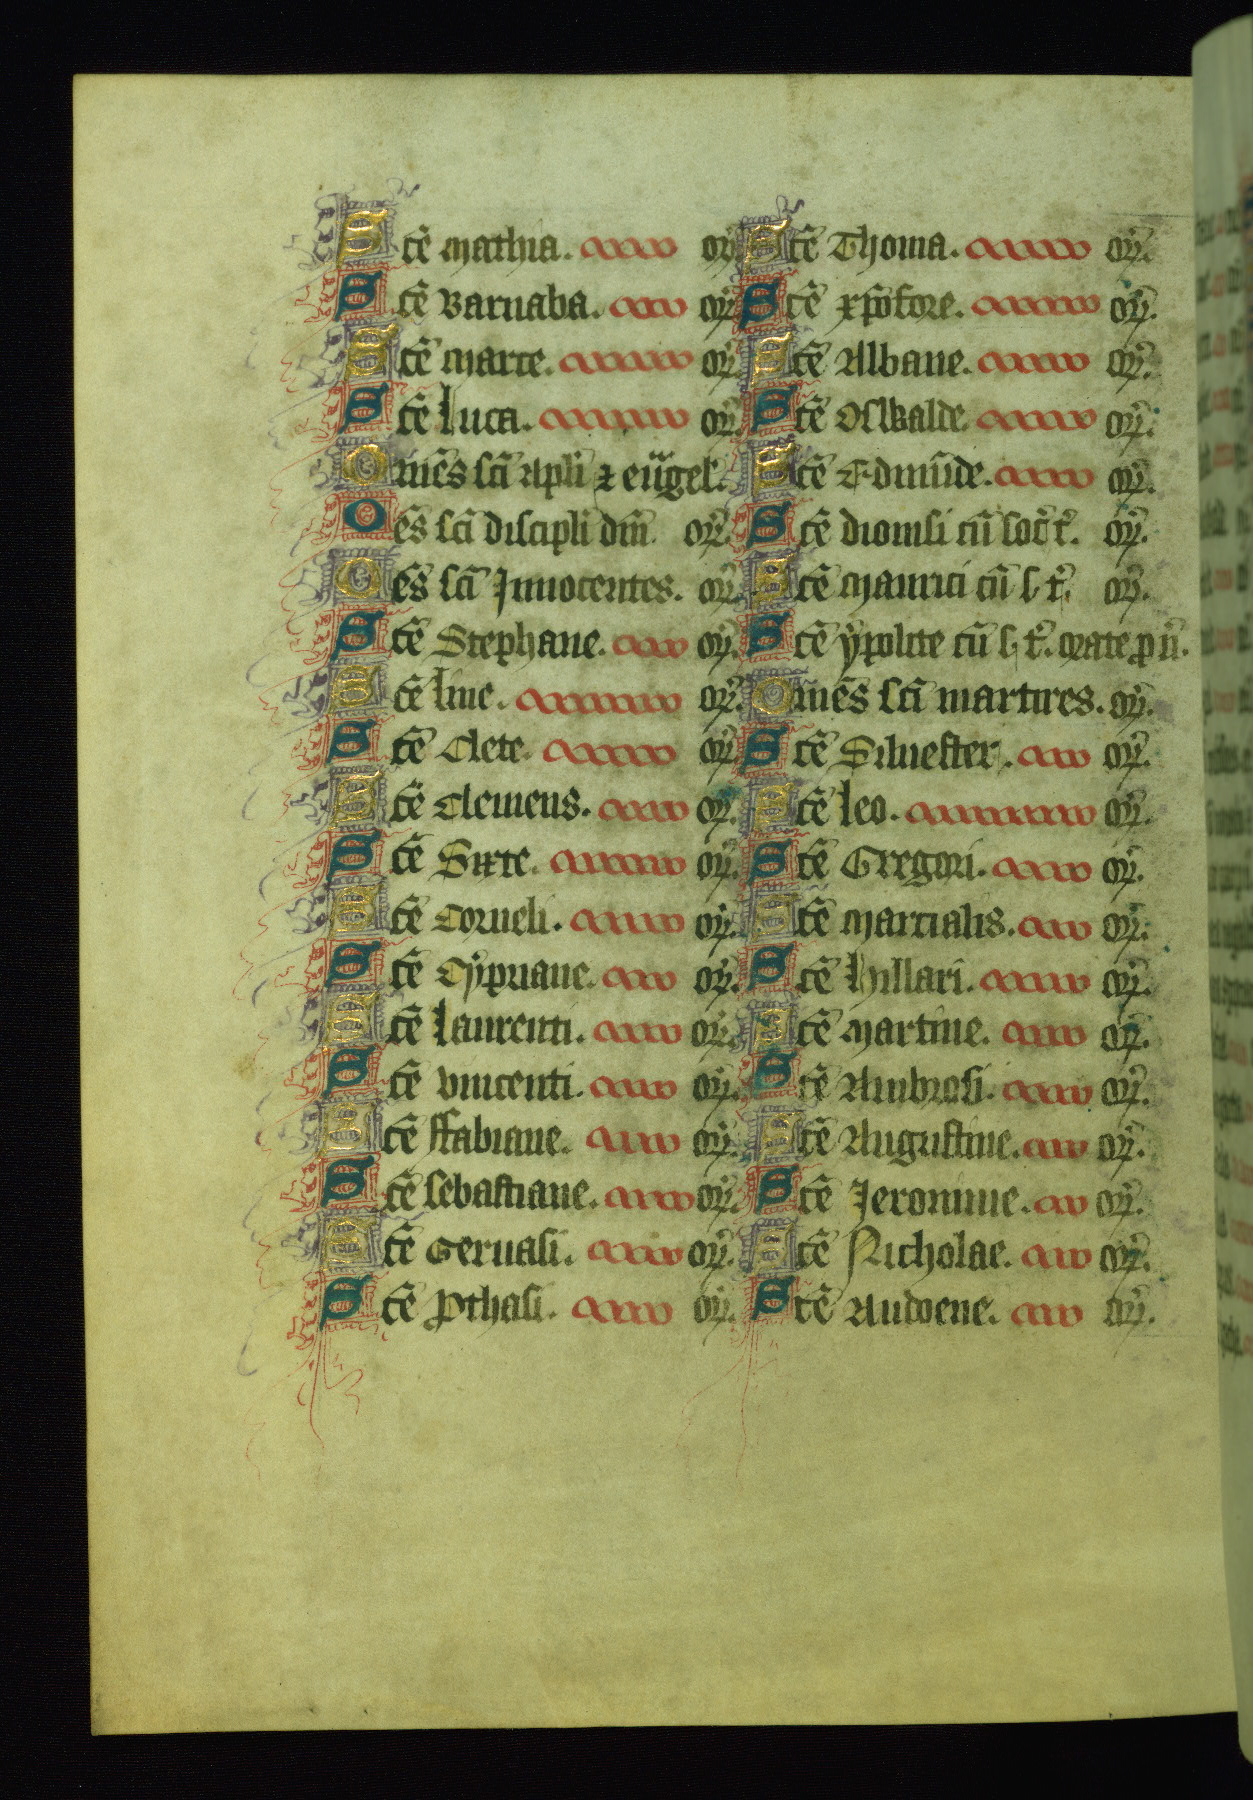 Scē Mathia. or̄.
Scē Barnaba. or̄.
Scē Marce. or̄.
Scē Luca. or̄.
Om̄es sc̄i Apl̄i ⁊ eūgel̄.
Oēs sc̄i discipl̄i dn̄i. or̄.
Oēs sc̄i Innocentes. or̄.
Scē Stephane. or̄.
Scē Line. or̄.
Scē Clete. or̄.
Scē Clemens. or̄.
Scē Sixte. or̄.
Scē Corneli. or̄.
Scē Cypriane. or̄.
Scē Laurenti. or̄.
Scē Vincenti. or̄.
Scē ffabiane. or̄.
Scē Sebastiane. or̄.
Scē Geruasi. or̄.
Scē Ꝓthasi. or̄.
Scē Thoma. or̄.
Scē xp̄ofore. or̄.
Scē Albane. or̄.
Scē Oswalde. or̄.
Scē Edmūde. or̄.
Scē Dionisi cū soc̄ t̄. or̄.
Scē Maurici cū s. t̄. or̄.
Scē ypolite cū s. t̄. orate ꝓ n̄.
Om̄es sc̄i martires. or̄.
Scē Siluester. or̄.
Scē Leo. or̄.
Scē Gregori. or̄.
Scē Marcialis. or̄.
Scē Hillari. or̄.
Scē Martine. or̄.
Scē Ambrosi. or̄.
Scē Augustine. or̄.
Scē Jeronime. or̄.
Scē Nicholae. or̄.
Scē Audoene. or̄.